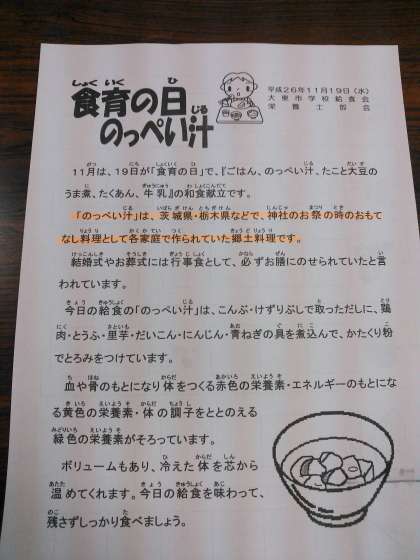 食育の日
のっぺい汁
平成26年11月19日(水)
大東市学校給食会
栄養士部会
11月は、19日が「食育の日」で、『ごはん、のっぺい汁、たこと大豆の
うま煮、たくあん、牛乳』の和食献立です。
「のっぺい汁」は、茨城県・栃木県などで、神社のお祭の時のおもて
なし料理として各家庭で作られていた郷土料理です。
結婚式やお葬式には行事食として、必ずお膳にのせられていたと言
われています。
今日の給食の「のっぺい汁」は、こんぶ・けずりぶしで取っただしに、鶏
肉・とうふ・里芋・だいこん・にんじん・青ねぎの具を煮込んで、かたくり粉
でとろみをつけています。
血や骨のもとになり体をつくる赤色の栄養素・エネルギーのもとにな
る黄色の栄養素・体の調子をととのえる
緑色の栄養素がそろっています。
ボリュームもあり、冷えた体を芯から
温めてくれます。今日の給食を味わって、
残さずしっかり食べましょう。